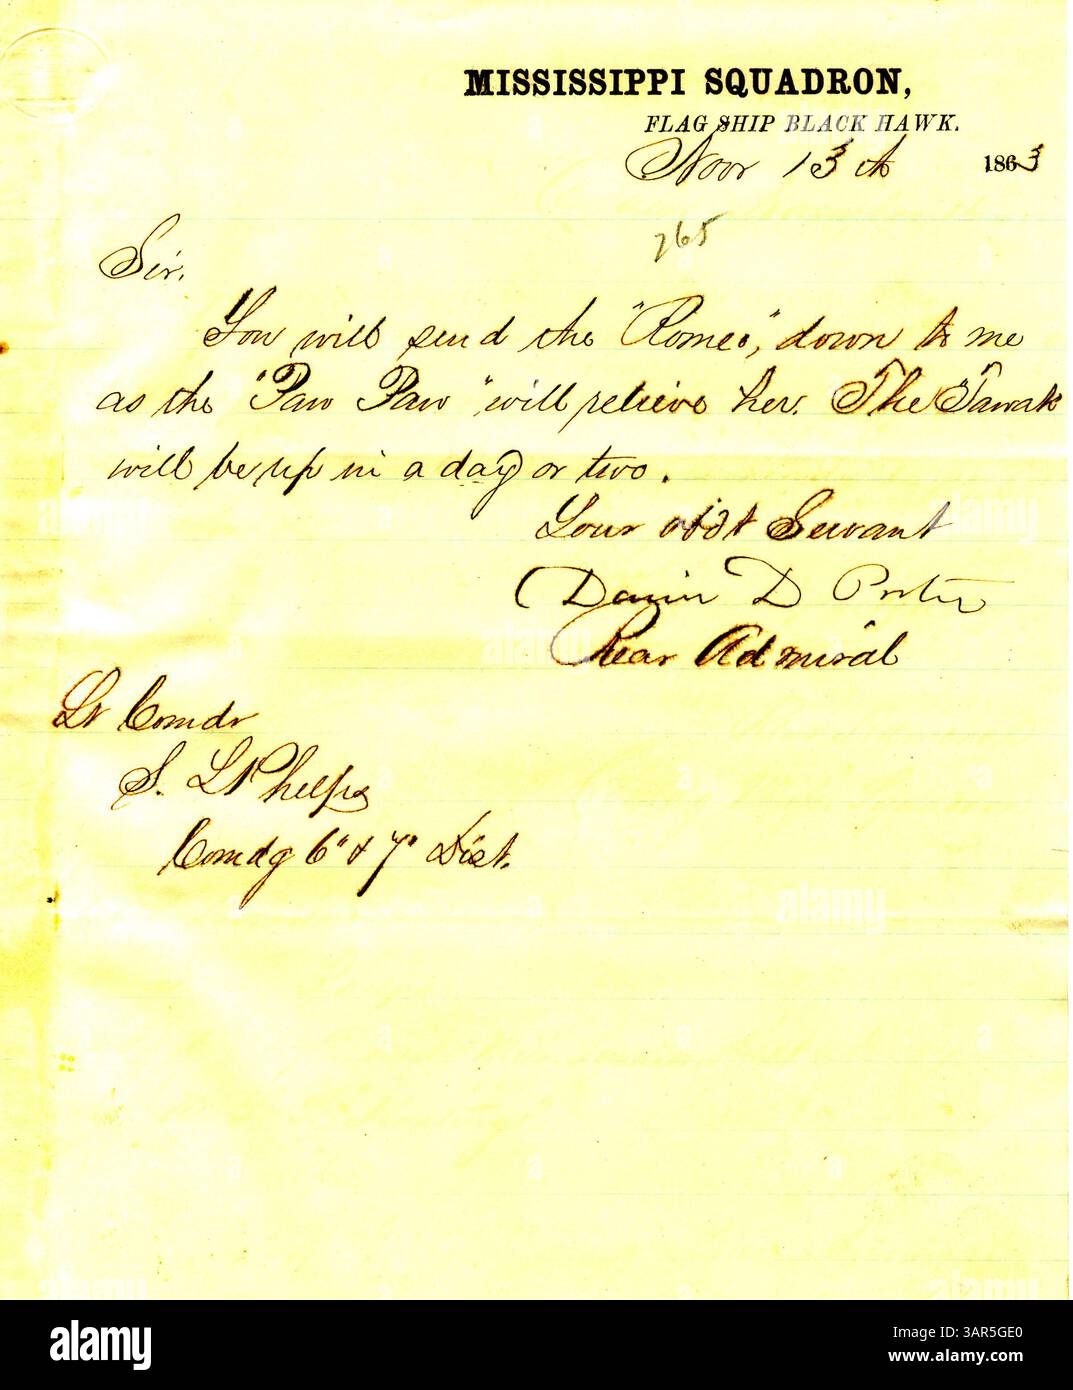 MISSISSIPPI SQUADRON,
FLAG SHIP BLACK HAWK.
Novr 13th 1863
765
Sir.
You will send the "Romeo", down to me
as the "Paw Paw" will relieve her. The Tawah
will be up in a day or two.
Your obdt Servant
David D Porter
Rear Admiral
Lt Comdr
S. L Phelps
Comdg 6" & 7" Dist.
alamy
Image ID: 3AR5GE0
www.alamy.com